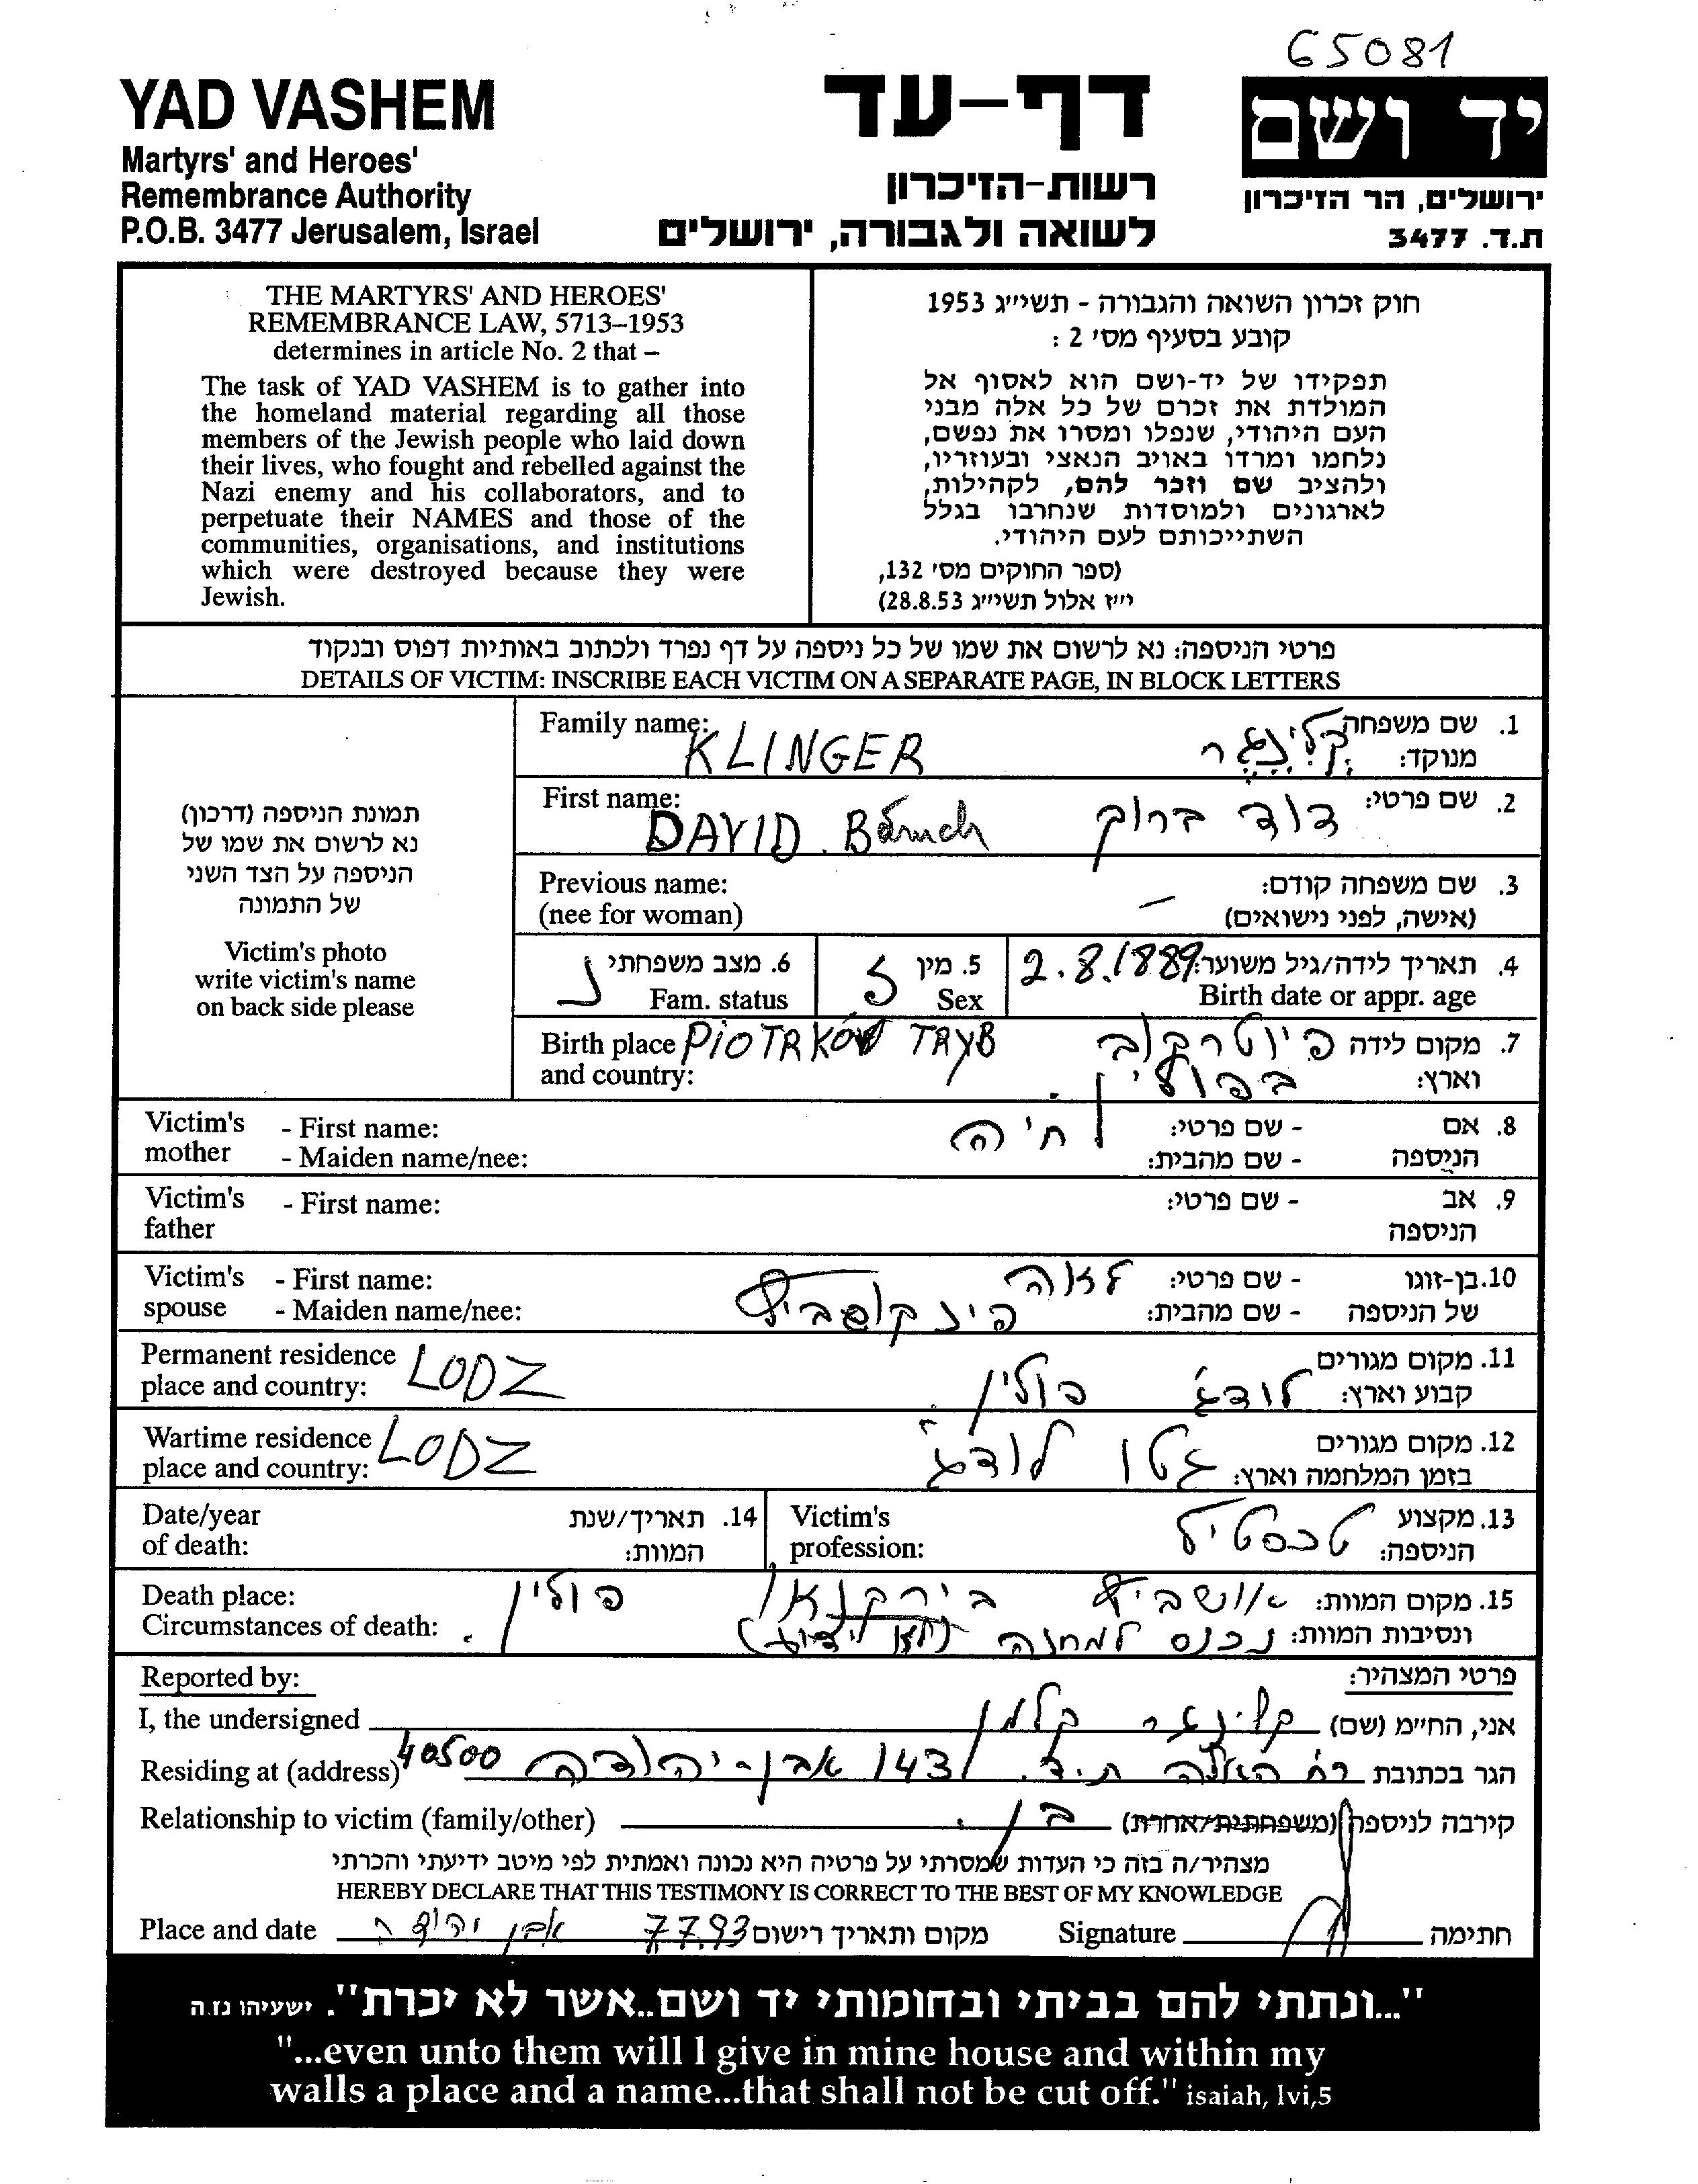 65081
YAD VASHEM
Martyrs' and Heroes'
Remembrance Authority
P.O.B. 3477 Jerusalem, Israel
דף-עד
רשות-הזיכרון
לשואה ולגבורה, ירושלים
יד ושם
ירושלים, הר הזיכרון
ת.ד. 3477
THE MARTYRS' AND HEROES'
REMEMBRANCE LAW, 5713–1953
determines in article No. 2 that –
The task of YAD VASHEM is to gather into
the homeland material regarding all those
members of the Jewish people who laid down
their lives, who fought and rebelled against the
Nazi enemy and his collaborators, and to
perpetuate their NAMES and those of the
communities, organisations, and institutions
which were destroyed because they were
Jewish.
חוק זכרון השואה והגבורה - תשי״ג 1953
קובע בסעיף מס׳ 2 :
תפקידו של יד-ושם הוא לאסוף אל
המולדת את זכרם של כל אלה מבני
העם היהודי, שנפלו ומסרו את נפשם,
נלחמו ומרדו באויב הנאצי ובעוזריו,
ולהציב שם וזכר להם, לקהילות,
לארגונים ולמוסדות שנחרבו בגלל
השתייכותם לעם היהודי.
(ספר החוקים מס׳ 132,
י״ז אלול תשי״ג 28.8.53)
פרטי הניספה: נא לרשום את שמו של כל ניספה על דף נפרד ולכתוב באותיות דפוס ובנקוד
DETAILS OF VICTIM: INSCRIBE EACH VICTIM ON A SEPARATE PAGE, IN BLOCK LETTERS
תמונת הניספה (דרכון)
נא לרשום את שמו של
הניספה על הצד השני
של התמונה
Victim's photo
write victim's name
on back side please
Family name: KLINGER קלינגר 1. שם משפחה
מנוקד:
First name: DAVID. Baruch דוד ברוך 2. שם פרטי:
Previous name: 3. שם משפחה קודם:
(nee for woman) – (אישה, לפני נישואים)
6. מצב משפחתי נ 5. מין ז 2.8.1889 4. תאריך לידה/גיל משוער:
Fam. status Sex Birth date or appr. age
Birth place PIOTRKÓW TRYB פיוטרקוב 7. מקום לידה
and country: בפולין. וארץ:
Victim's - First name: חיה - שם פרטי: 8. אם
mother - Maiden name/nee: - שם מהבית: הניספה
Victim's - First name: - שם פרטי: 9. אב
father הניספה
Victim's - First name: לאה - שם פרטי: 10. בן-זוגו
spouse - Maiden name/nee: - שם מהבית: של הניספה
Permanent residence LODZ לודג׳ פולין 11. מקום מגורים
place and country: קבוע וארץ:
Wartime residence LODZ גטו לודג׳ 12. מקום מגורים
place and country: בזמן המלחמה וארץ:
Date/year 14. תאריך/שנת Victim's טכסטיל 13. מקצוע
of death: המוות: profession: הניספה:
Death place: אושביץ בירקנאו פולין 15. מקום המוות:
Circumstances of death: נכנס למחנה (לא ידוע) ונסיבות המוות:
Reported by: פרטי המצהיר:
I, the undersigned קלינגר קלמן אני, החי״מ (שם)
Residing at (address) רח האלה ת.ד. 143 אבן-יהודה 40500 הגר בכתובת
Relationship to victim (family/other) בן. קירבה לניספה (משפחתית/אחרת)
מצהיר/ה בזה כי העדות שמסרתי על פרטיה היא נכונה ואמתית לפי מיטב ידיעתי והכרתי
HEREBY DECLARE THAT THIS TESTIMONY IS CORRECT TO THE BEST OF MY KNOWLEDGE
Place and date אבן יהודה 7.7.93 מקום ותאריך רישום Signature חתימה
"...ונתתי להם בביתי ובחומותי יד ושם..אשר לא יכרת". ישעיהו נז.ה
"...even unto them will I give in mine house and within my
walls a place and a name...that shall not be cut off." isaiah, lvi,5